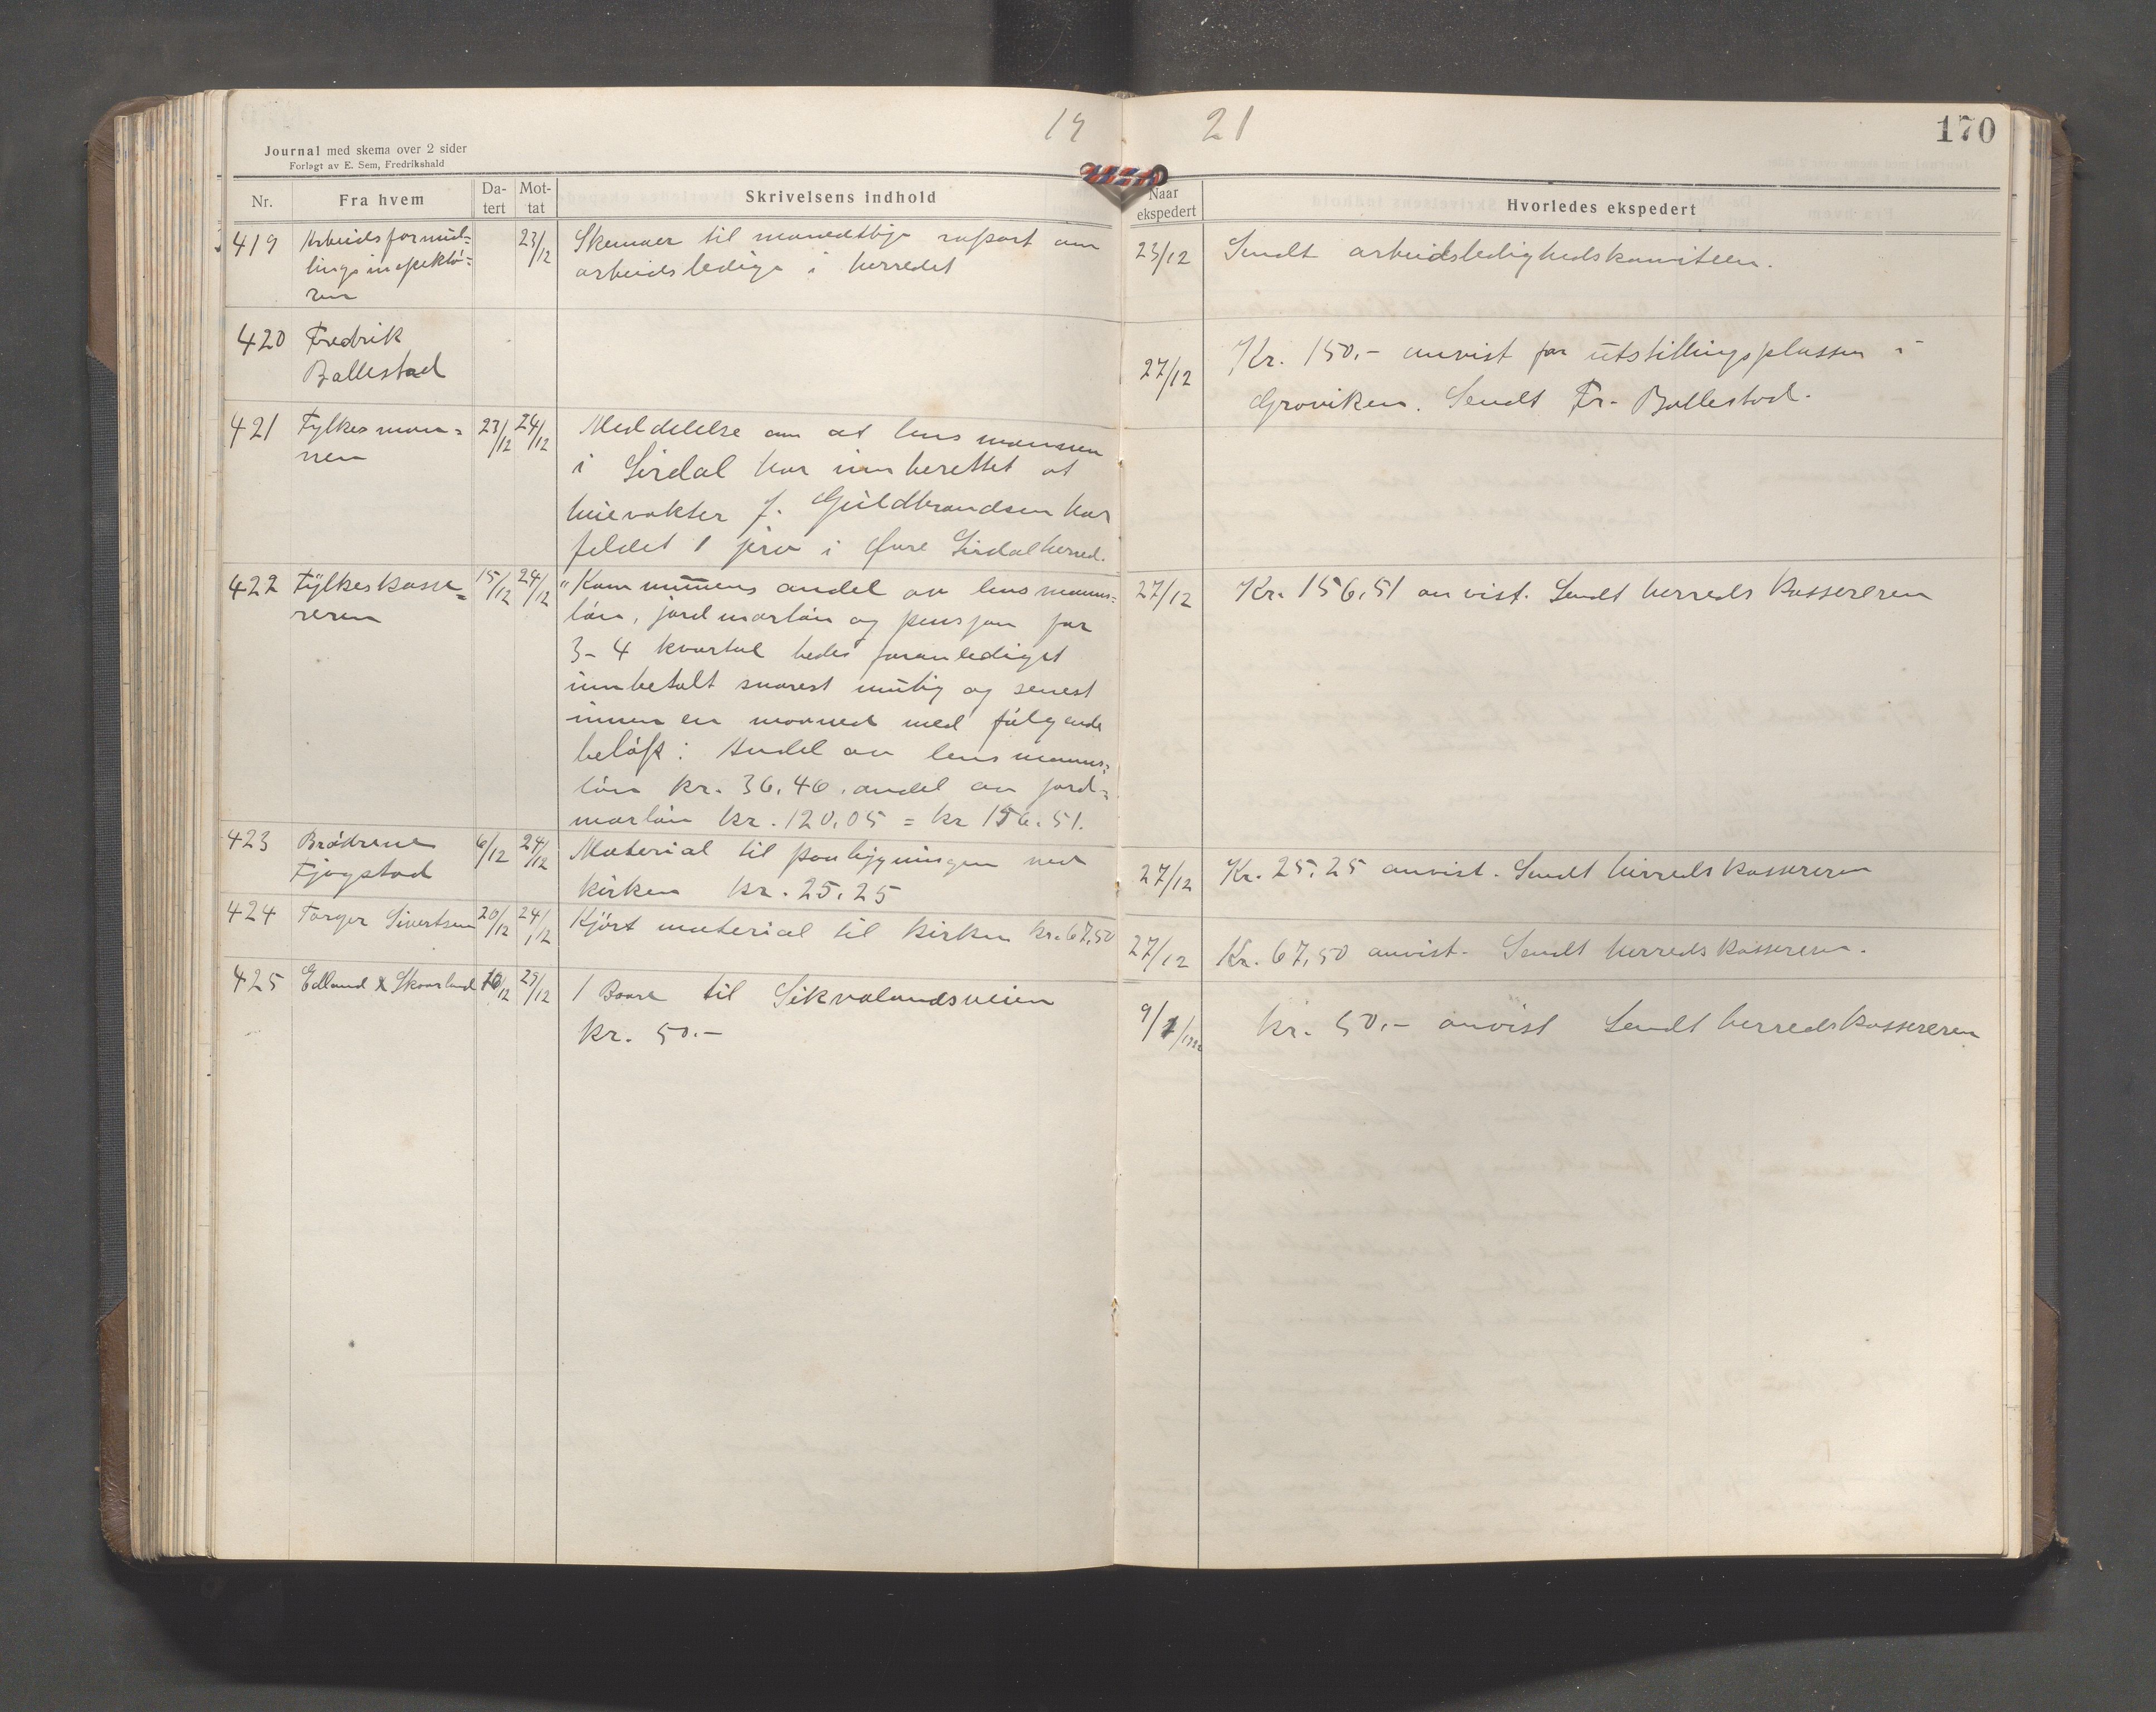 19 21
170
Journal med skema over 2 sider
Forlagt av E. Sem, Fredrikshald
Nr. Fra hvem Da-tert Mot-tat Skrivelsens indhold Naar ekspedert Hvorledes ekspedert
419 Arbeidsformid= 23/12 Skemaer til manedtlige raport om 23/12 Sendt arbeidsledighedskomiteen.
lingsinspektö= arbeidsledige i herredet
ren
420 Fredrik 27/12 Kr. 150.- anvist for utstillingsplassen i
Ballestad Groviken. Sendt Fr. Ballestad.
421 Fylkesman= 23/12 24/12 Meddelelse om at lensmannen
nen i Sirdal har innberettet at
heievakter J. Guldbrandsen har
feldet 1 jerv i Øvre Sirdal herred.
422 Fylkeskasse= 15/12 24/12 "Kommunens andel av lensmanns= 27/12 Kr. 156,51 anvist. Sendt herredskassereren
reren lön, jordmorlön og pensjon for
3-4 kvartal bedes foranlediget
innbetalt snarest mulig og senest
innen en maaned med fölgende
belöp: Andel av lensmanns=
lön kr. 36.46. andel av jord=
morlön kr. 120,05 = kr 156.51.
423 Brödrene 6/12 24/12 Material til paabygningen ved 27/12 Kr. 25,25 anvist. Sendt herredskassereren
Fjogstad kirken kr. 25,25
424 Torger Sivertsen 20/12 24/12 Kjört material til kirken kr. 67,50 27/12 Kr. 67,50 anvist. Sendt herredskassereren.
425 Edland & Skaarland 10/12 29/12 1 Baare til Sikvalandsveien 9/1/1922 kr. 50.- anvist Sendt herredskassereren
kr. 50.-